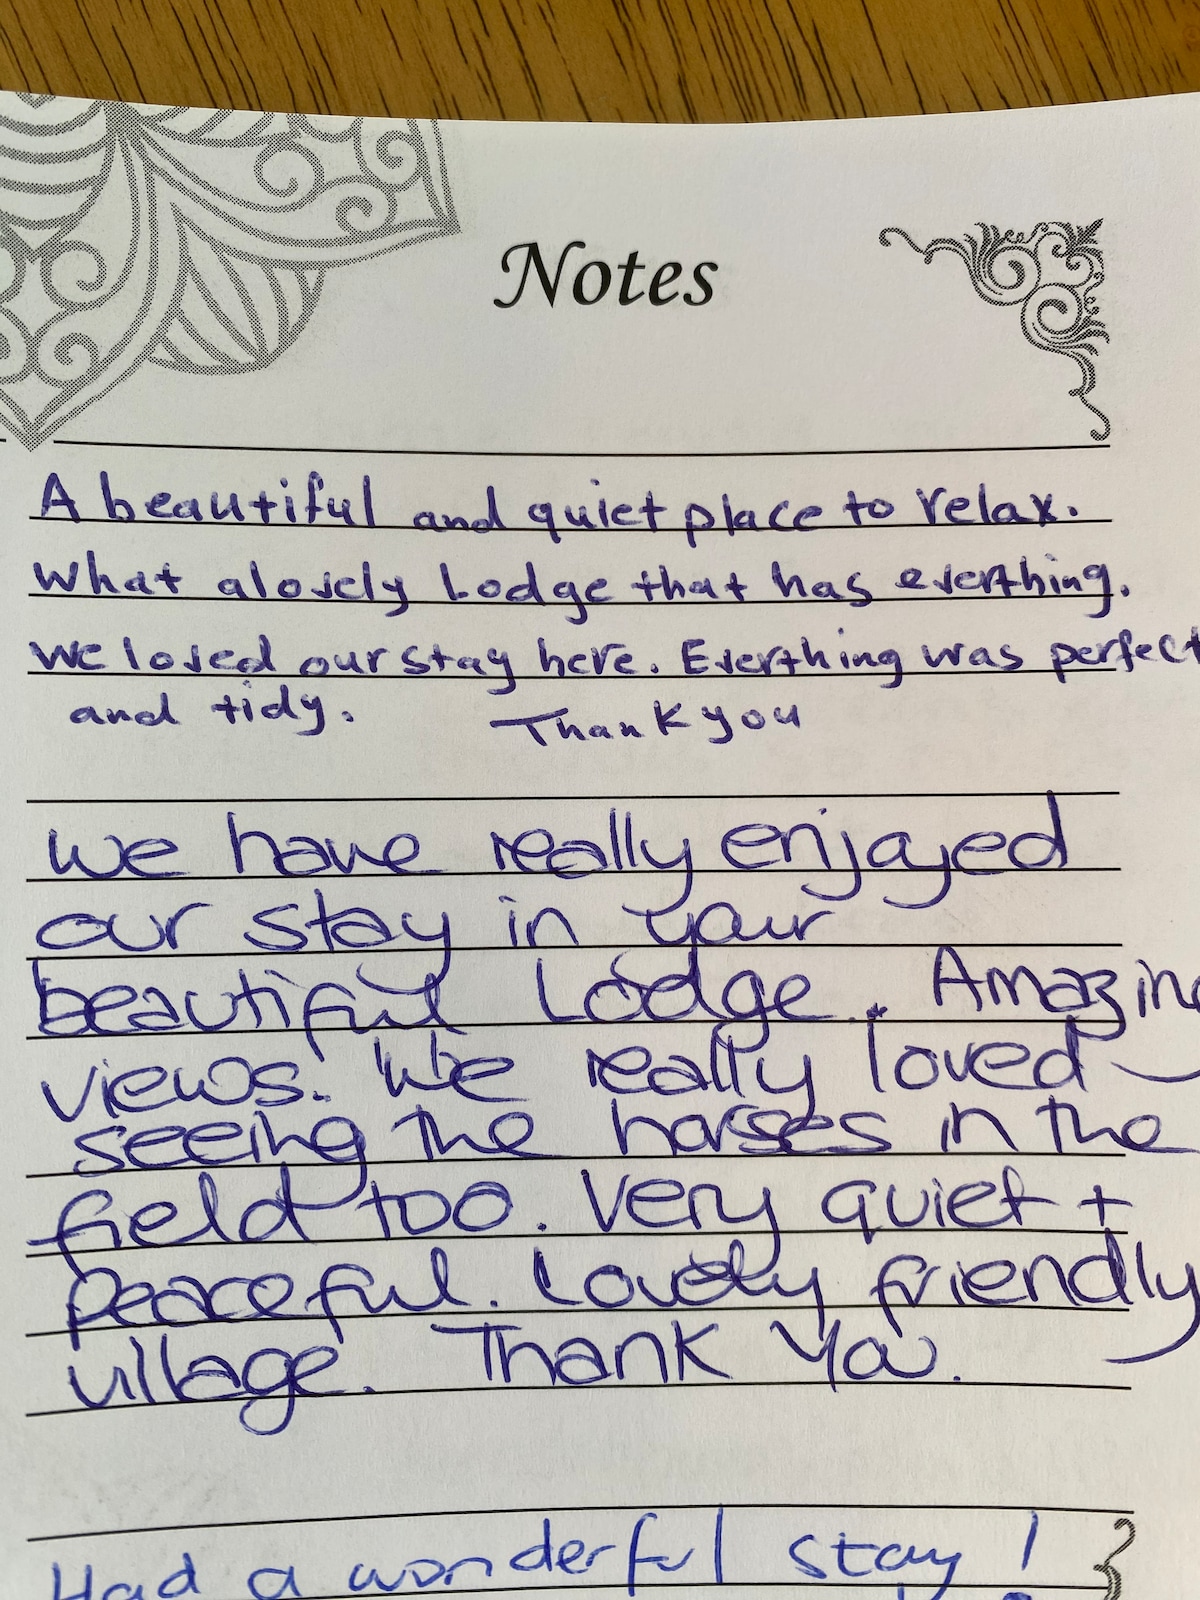 Notes
A beautiful and quiet place to relax.
What a lovely Lodge that has everthing.
We loved our stay here. Everthing was perfect
and tidy. Thank you
We have really enjoyed
our stay in your
beautiful Lodge. Amazing
views. We really loved
seeing the horses in the
field too. Very quiet +
peaceful. Lovely friendly
village. Thank You.
Had a wonderful stay!